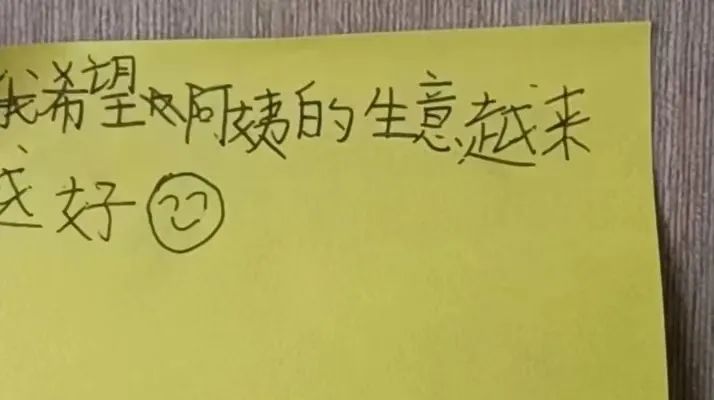 我希望阿姨的生意越来
越好